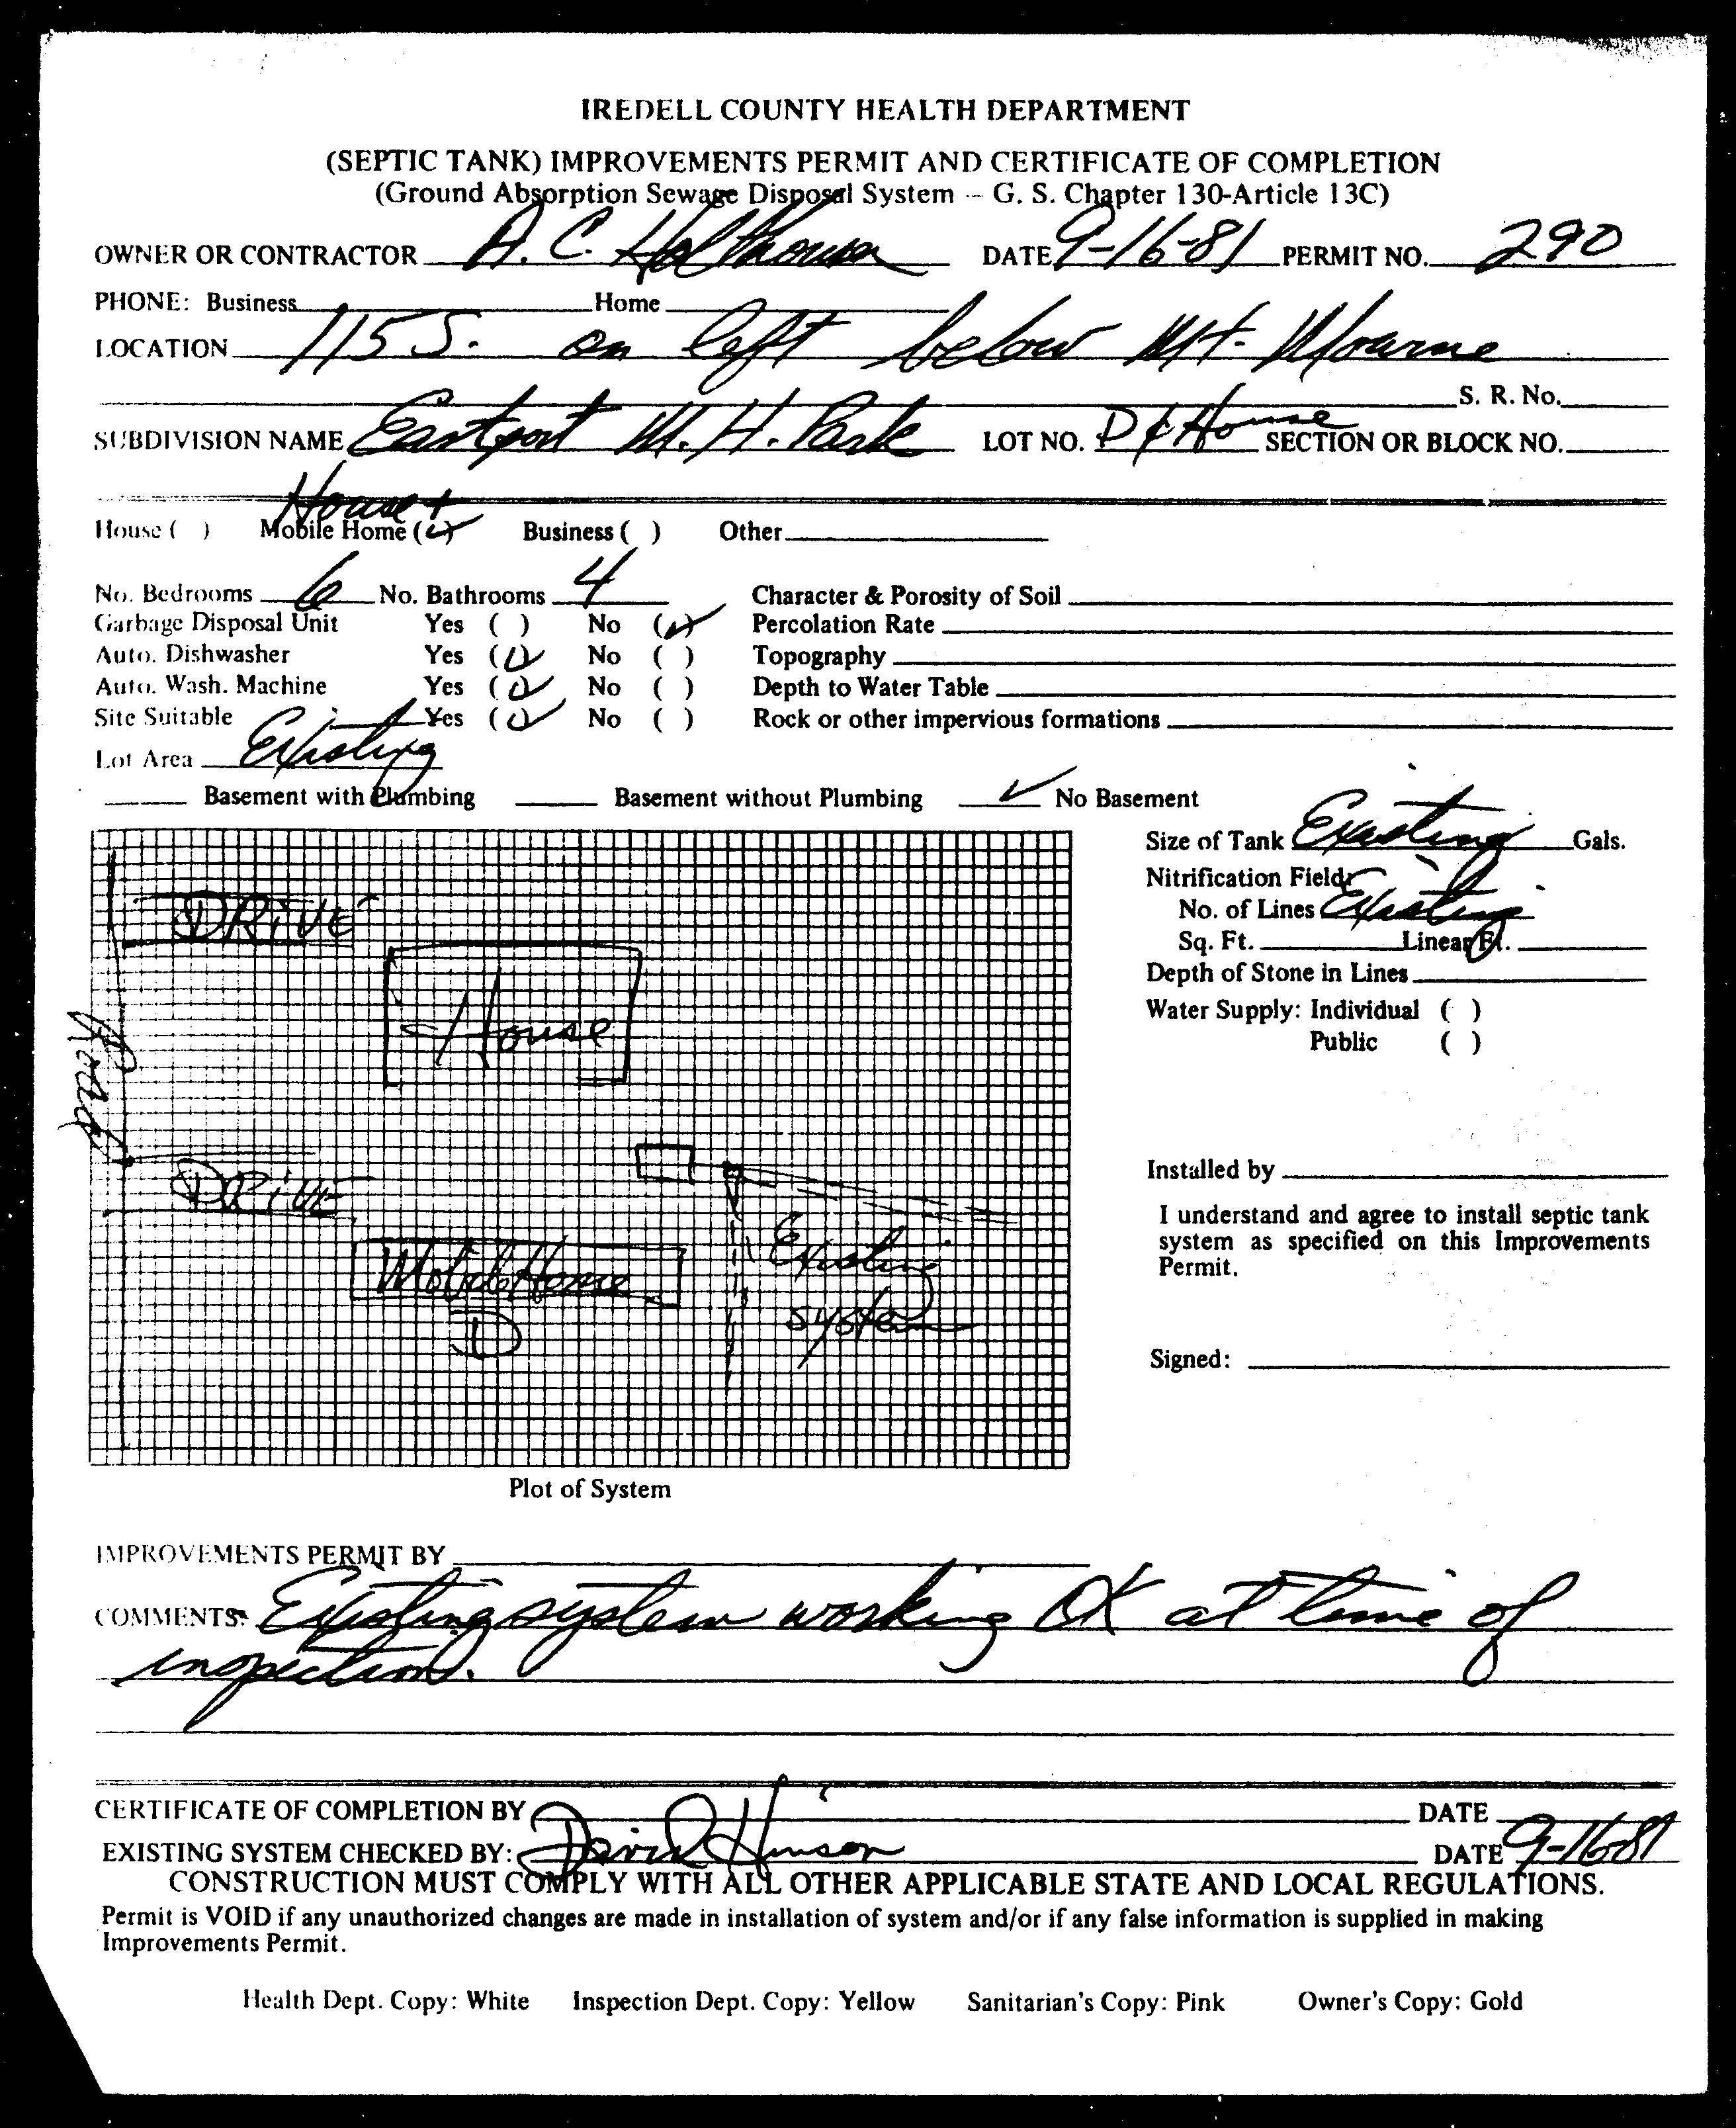 IREDELL COUNTY HEALTH DEPARTMENT
(SEPTIC TANK) IMPROVEMENTS PERMIT AND CERTIFICATE OF COMPLETION
(Ground Absorption Sewage Disposal System -- G. S. Chapter 130-Article 13C)
OWNER OR CONTRACTOR A. C. DATE 9-16-81 PERMIT NO. 290
PHONE: Business Home
LOCATION 115 S. on left below Mt. Mourne
S. R. No.
SUBDIVISION NAME Eastport M. H. Park LOT NO. D & House SECTION OR BLOCK NO.
House +
House ( ) Mobile Home (✓) Business ( ) Other
No. Bedrooms 6 No. Bathrooms 4 Character & Porosity of Soil
Garbage Disposal Unit Yes ( ) No (✓) Percolation Rate
Auto. Dishwasher Yes (✓) No ( ) Topography
Auto. Wash. Machine Yes (✓) No ( ) Depth to Water Table
Site Suitable Yes (✓) No ( ) Rock or other impervious formations
Lot Area Existing
Basement with Plumbing Basement without Plumbing ✓ No Basement
Size of Tank Existing Gals.
Nitrification Field:
No. of Lines Existing
Sq. Ft. Linear Ft.
Depth of Stone in Lines
Water Supply: Individual ( )
Public ( )
Installed by
I understand and agree to install septic tank
system as specified on this Improvements
Permit.
Signed:
DRIVE
House
Road
DRIVE
Mobile Home
D
Existing
system
Plot of System
IMPROVEMENTS PERMIT BY
COMMENTS: Existing system working OK at time of
inspection.
CERTIFICATE OF COMPLETION BY DATE
EXISTING SYSTEM CHECKED BY: David Hinson DATE 9-16-81
CONSTRUCTION MUST COMPLY WITH ALL OTHER APPLICABLE STATE AND LOCAL REGULATIONS.
Permit is VOID if any unauthorized changes are made in installation of system and/or if any false information is supplied in making
Improvements Permit.
Health Dept. Copy: White Inspection Dept. Copy: Yellow Sanitarian's Copy: Pink Owner's Copy: Gold